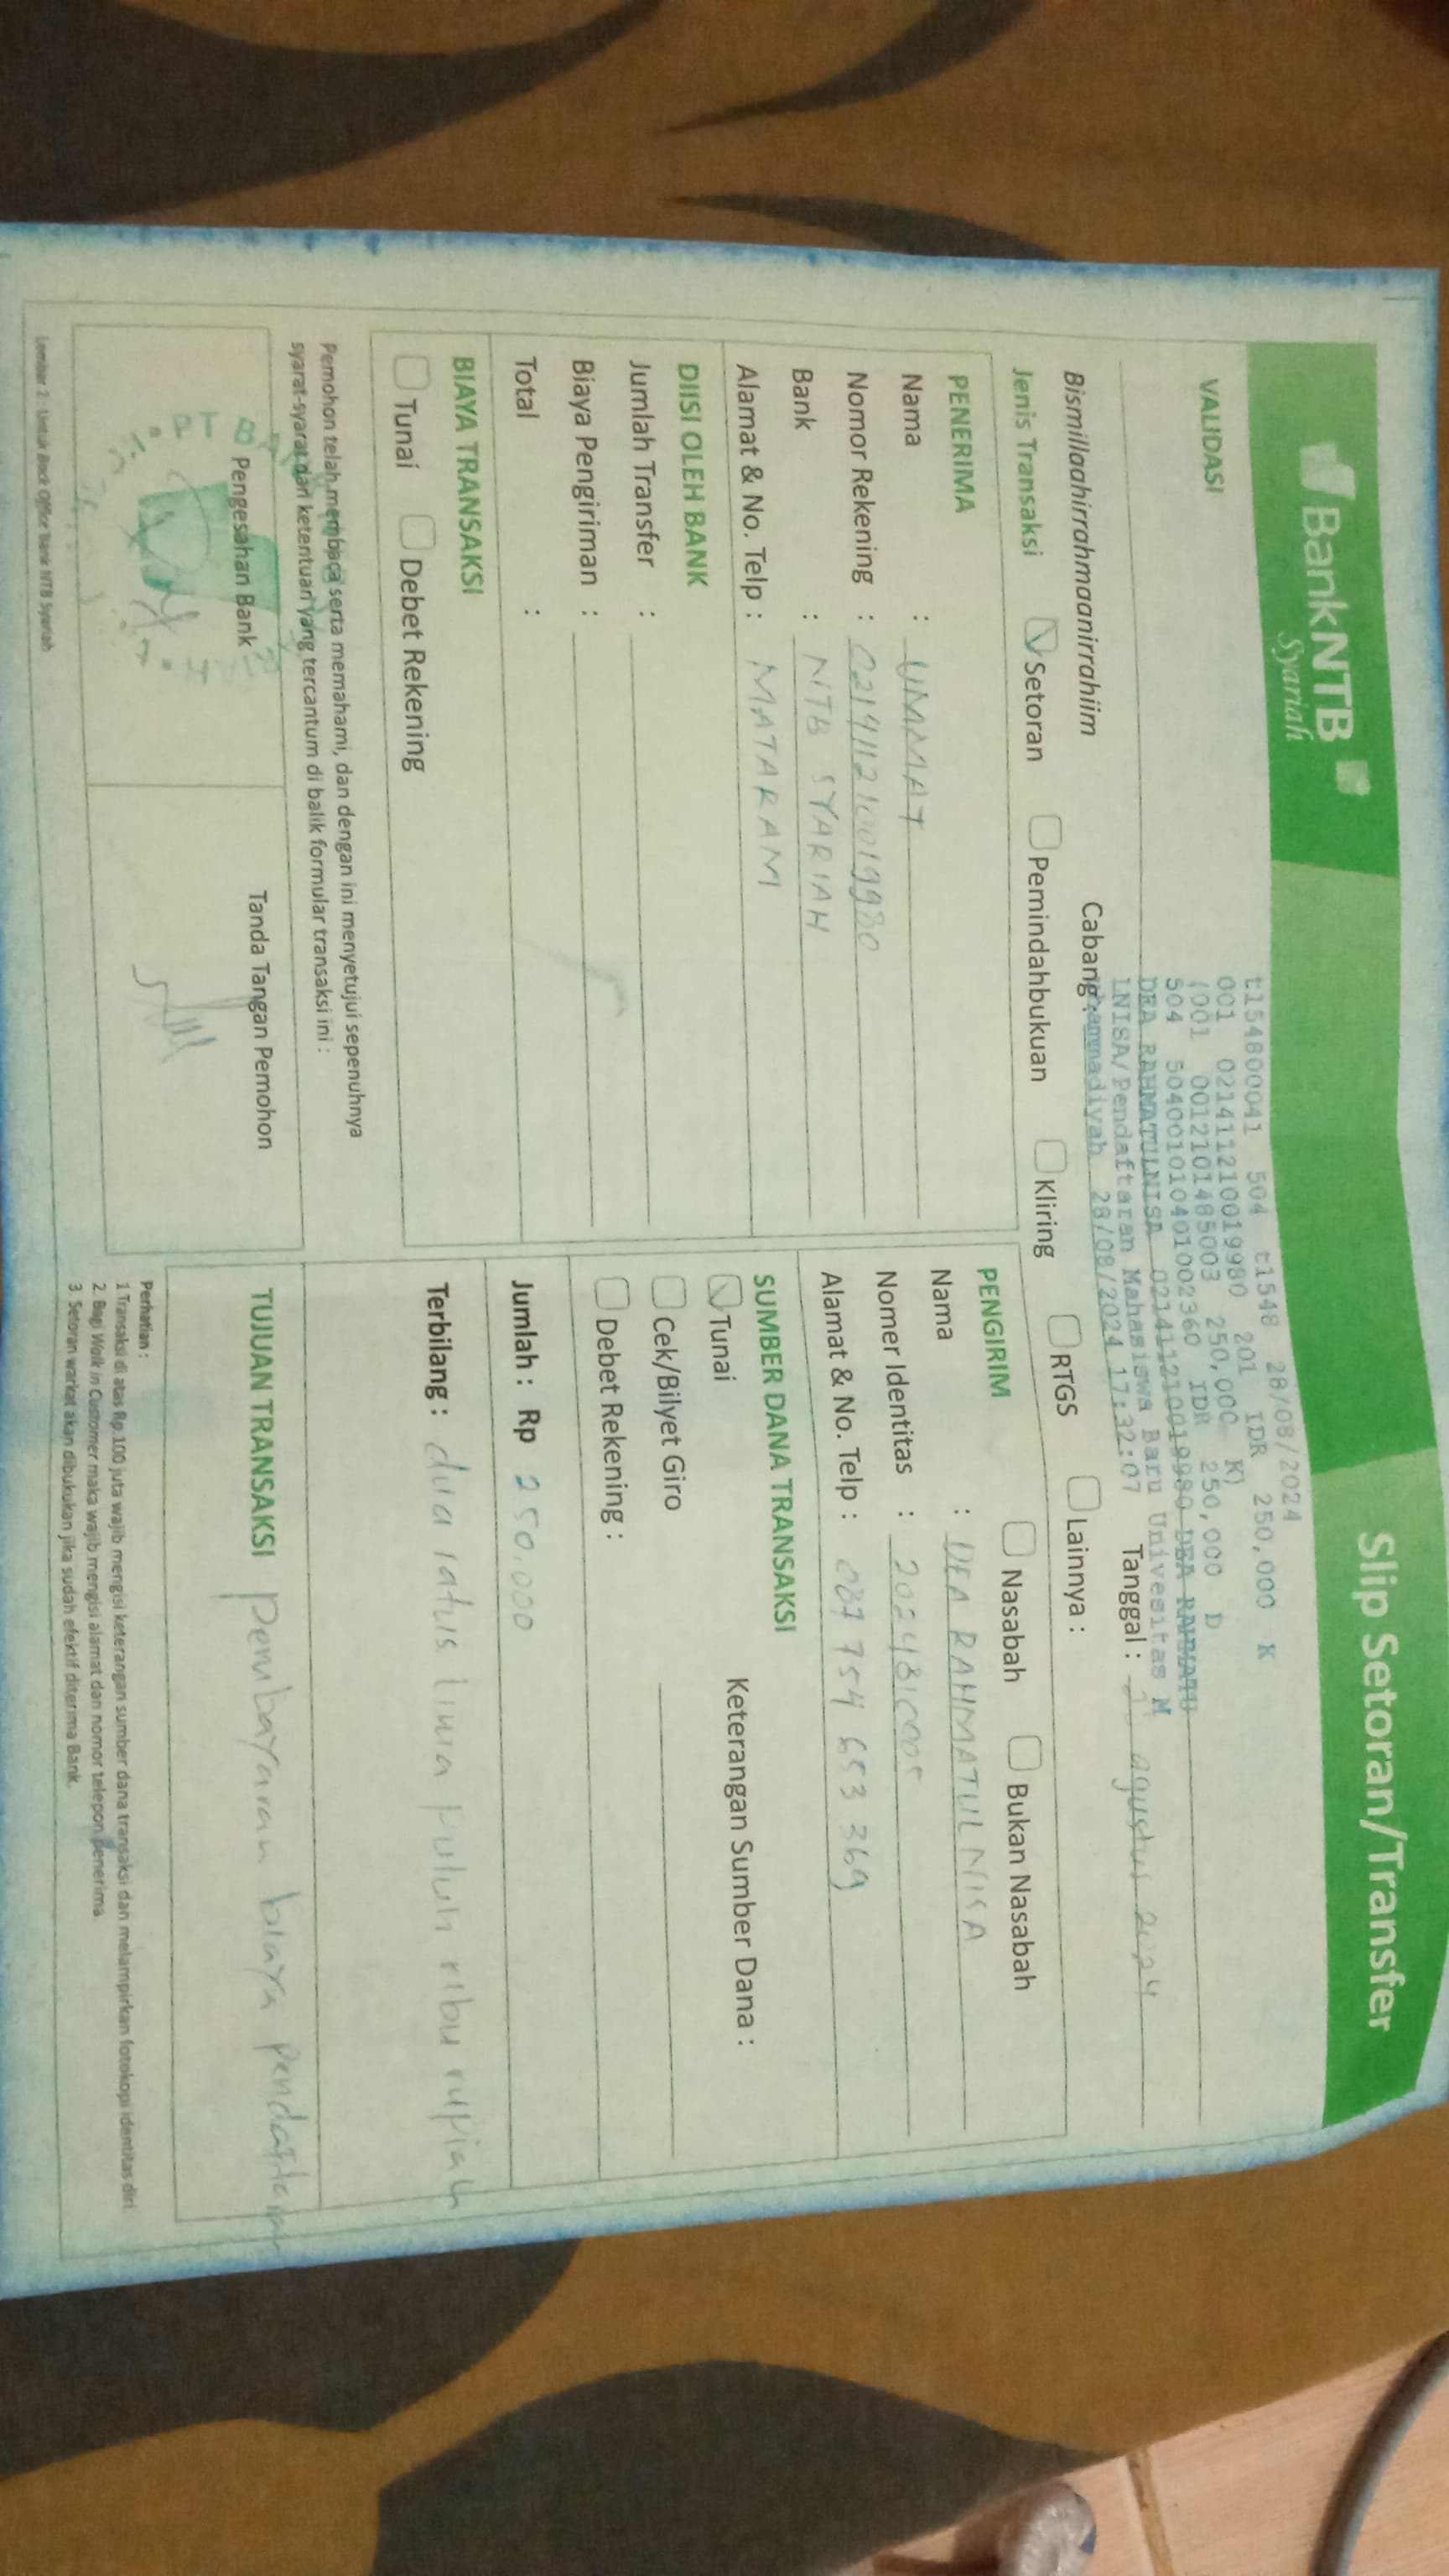 BankNTB
Syariah
Slip Setoran/Transfer
VALIDASI
t154800041 504 t1548 28/08/2024
001 021411210019980 201 IDR 250,000 K
(001 0012101485003 250,000 K)
504 504001010401002360 IDR 250,000 D
DEA RAHMATULNISA 021411210019980 DEA RAHMATU
LNISA/Pendaftaran Mahasiswa Baru Univesitas M
uhammadiyah 28/08/2024 17:32:07
Bismillaahirrahmaanirrahiim
Cabang :
Tanggal : agustus 2024
Jenis Transaksi
Setoran
Pemindahbukuan
Kliring
RTGS
Lainnya :
PENERIMA
Nama : UMMAT
Nomor Rekening : 021411210019980
Bank : NTB SYARIAH
Alamat & No. Telp : MATARAM
DIISI OLEH BANK
Jumlah Transfer :
Biaya Pengiriman :
Total :
BIAYA TRANSAKSI
Tunai
Debet Rekening
Pemohon telah membaca serta memahami, dan dengan ini menyetujui sepenuhnya
syarat-syarat dan ketentuan yang tercantum di balik formular transaksi ini :
Pengesahan Bank
Tanda Tangan Pemohon
Lembar 2 : Untuk Back Office Bank NTB Syariah
PENGIRIM
Nasabah
Bukan Nasabah
Nama : DEA RAHMATUL NISA
Nomer Identitas :
Alamat & No. Telp : 087 754 653 369
SUMBER DANA TRANSAKSI
Keterangan Sumber Dana :
Tunai
Cek/Bilyet Giro
Debet Rekening :
Jumlah : Rp 250.000
Terbilang : dua ratus lima puluh ribu rupiah
TUJUAN TRANSAKSI pembayaran biaya pendaftaran
Perhatian :
1 Transaksi di atas Rp.100 juta wajib mengisi keterangan sumber dana transaksi dan melampirkan fotokopi identitas diri.
2 Bagi Walk in Customer maka wajib mengisi alamat dan nomor telepon penerima
3 Setoran warkat akan dibukukan jika sudah efektif diterima Bank.